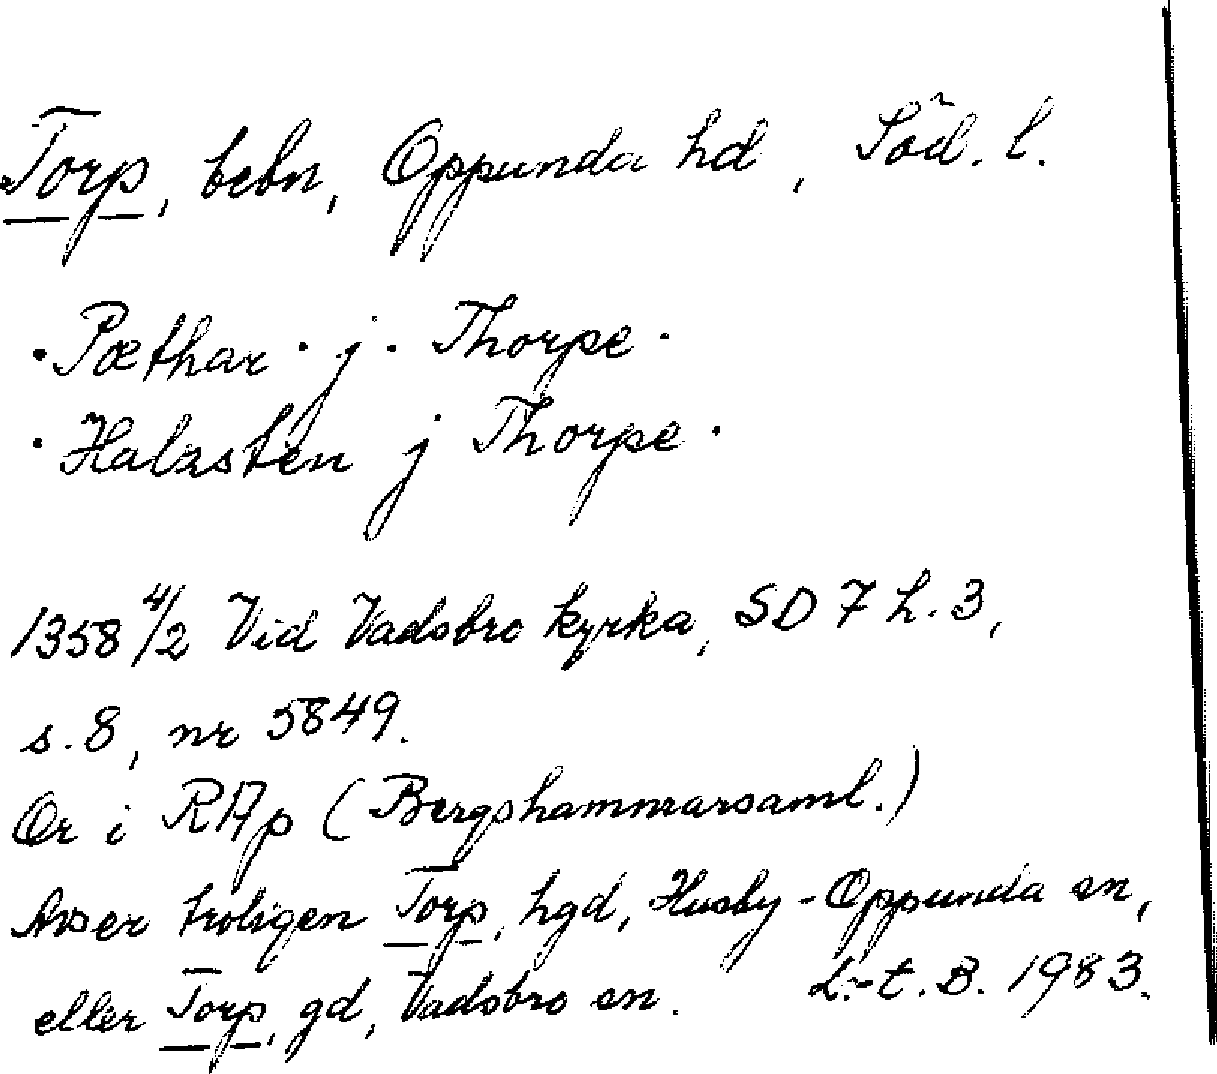 Torp, bebn, Oppunda hd, Söd. l.
· Pæthar · j · Thorpe ·
· Halzsten j Thorpe ·
1358 4/2 Vid Vadsbro kyrka, SD 7 h. 3,
s. 8, nr 5849.
Or i RAp (Bergshammarsaml.)
Avser troligen Torp, hgd, Husby-Oppunda sn,
eller Torp, gd, Vadsbro sn. L.-t. B. 1983.